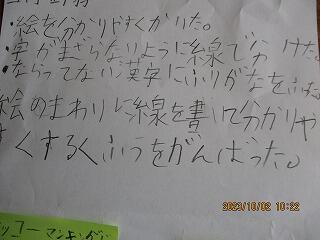 ・絵を分かりやすくかいた。
・字がまざらないように線で分けた。
・ならってない漢字にふりがなをふった。
絵のまわりに線を書いて分かりや
すくするくふうをがんばった。
2023/10/02 10:22